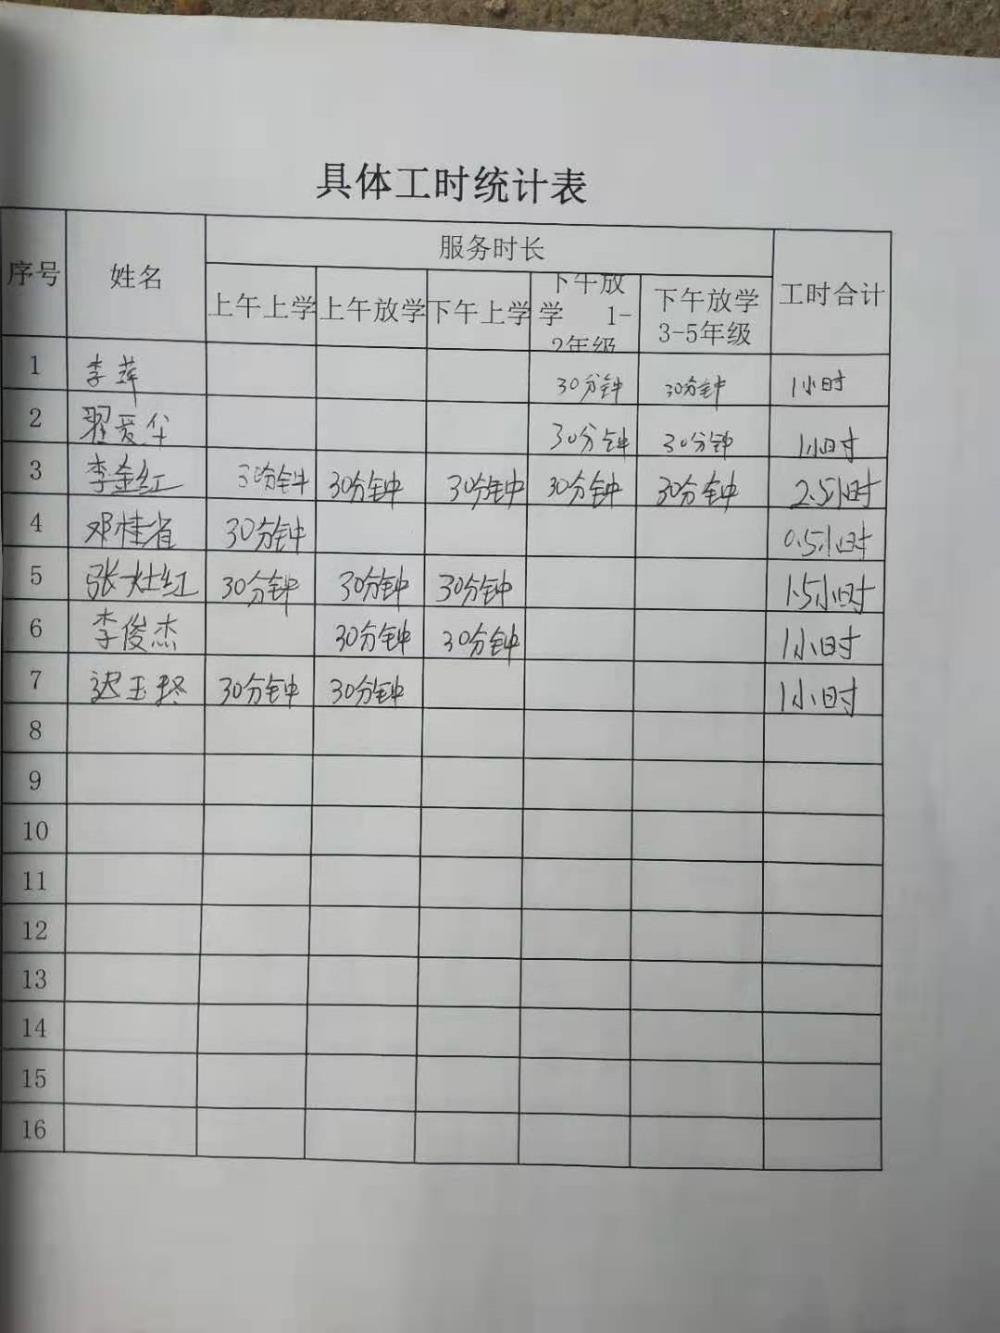 具体工时统计表
序号 姓名 服务时长 工时合计
上午上学 上午放学 下午上学 下午放学 1-2年级 下午放学 3-5年级
1 李萍 30分钟 30分钟 1小时
2 翟爱华 30分钟 30分钟 1小时
3 李金红 30分钟 30分钟 30分钟 30分钟 30分钟 2.5小时
4 邓桂省 30分钟 0.5小时
5 张灶红 30分钟 30分钟 30分钟 1.5小时
6 李俊杰 30分钟 30分钟 1小时
7 迟玉 30分钟 30分钟 1小时
8
9
10
11
12
13
14
15
16